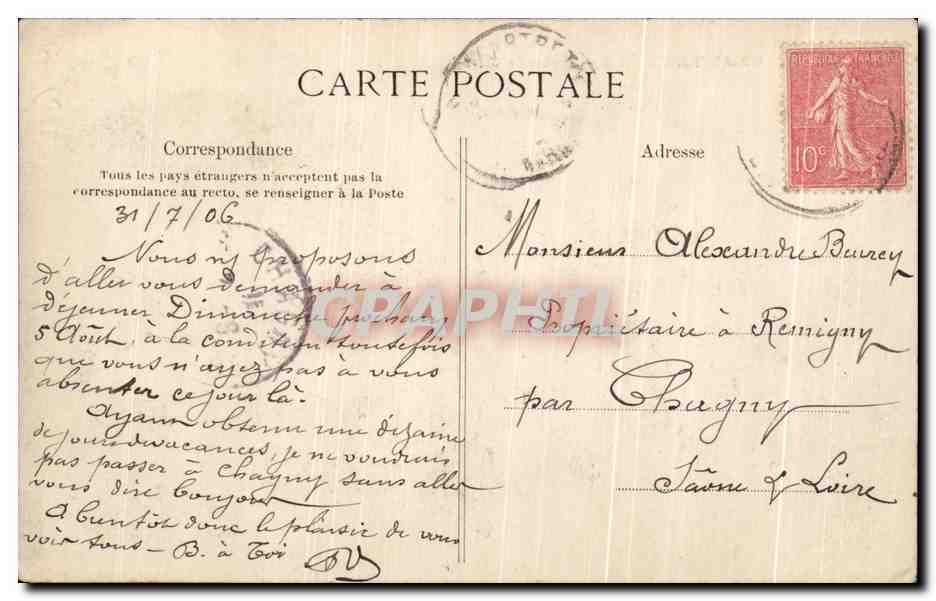 CARTE POSTALE
REPUBLIQUE FRANÇAISE
10c
Correspondance
Tous les pays étrangers n'acceptent pas la
correspondance au recto, se renseigner à la Poste
31/7/06
Nous ns proposons
d'aller vous demander à
déjeuner Dimanche prochain
5 Août, à la condition toutefois
que vous n'ayez pas à vous
absenter ce jour là.
Ayant obtenu une dizaine
de jours de vacances, je ne voudrais
pas passer à Chagny sans aller
vous dire bonjour
A bientôt donc le plaisir de vous
voir tous – B. à Toi
Adresse
Monsieur Alexandre
Propriétaire à Remigny
par Chagny
Saône & Loire
CPAPHIL